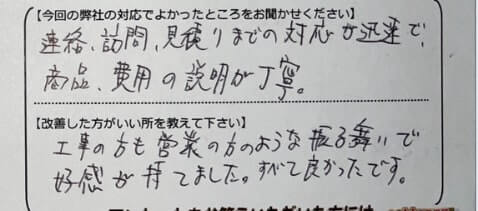 【今回の弊社の対応でよかったところをお聞かせください】
連絡、訪問、見積りまでの対応が迅速で、
商品、費用の説明が丁寧。
【改善した方がいい所を教えて下さい】
工事の方も営業の方のような振る舞いで
好感が持てました。すべて良かったです。